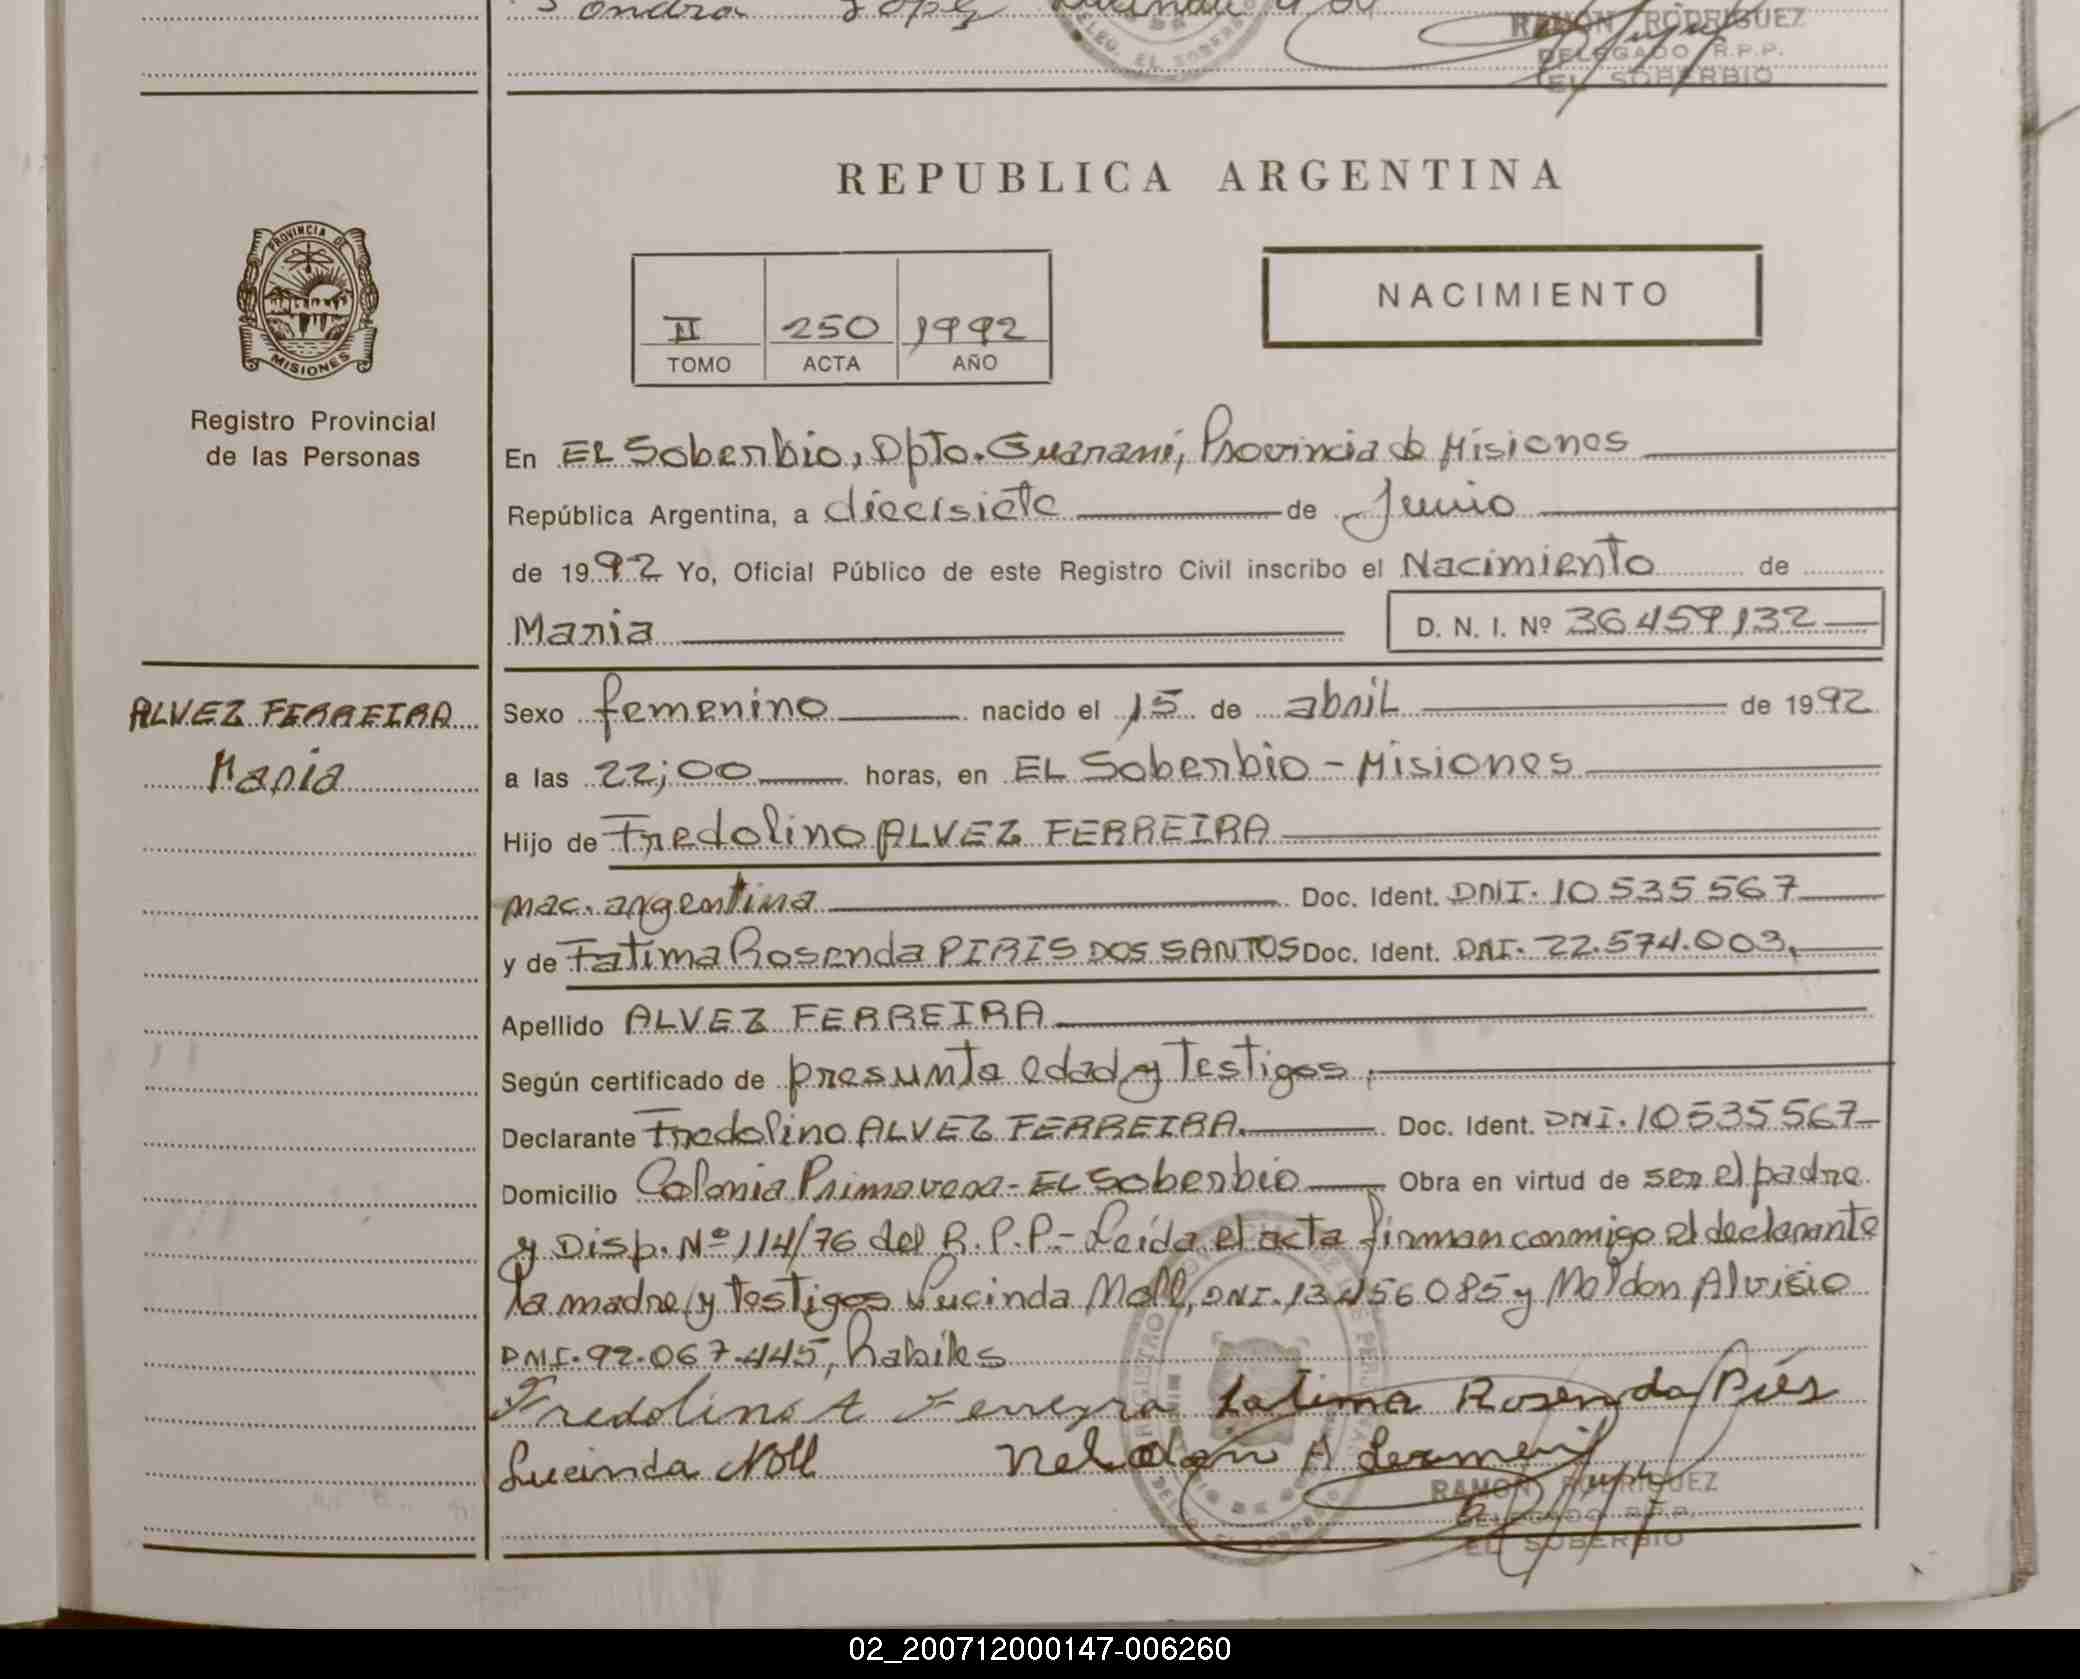 RAMON RODRIGUEZ
DELEGADO R.P.P.
EL SOBERBIO
REPUBLICA ARGENTINA
PROVINCIA DE
MISIONES
Registro Provincial
de las Personas
II 250 1992
TOMO ACTA AÑO
NACIMIENTO
En EL Soberbio, Dpto. Guaraní, Provincia de Misiones
República Argentina, a diecisiete de Junio
de 1992 Yo, Oficial Público de este Registro Civil inscribo el Nacimiento de
Maria D. N. I. Nº 36.459.132
ALVEZ FERREIRA
Maria
Sexo femenino nacido el 15 de abril de 1992
a las 22;00 horas, en EL Soberbio - Misiones
Hijo de Fredolino ALVEZ FERREIRA
nac. argentina Doc. Ident. DNI. 10.535.567
y de Fatima Rosenda PIRIS DOS SANTOS Doc. Ident. DNI. 22.574.003.
Apellido ALVEZ FERREIRA
Según certificado de presunta edad y Testigos
Declarante Fredolino ALVEZ FERREIRA. Doc. Ident. DNI. 10535567
Domicilio Colonia Primavera - EL Soberbio Obra en virtud de ser el padre
y Disp. Nº 114/76 del R.P.P.- Leída el acta firman conmigo el declarante
la madre y testigos Lucinda Noll, DNI. 13.456.085 y Neldon Aloisio
DNI. 92.067.445, habiles
Fredolino A Ferreyra Fatima Rosenda Piris
Lucinda Noll
RAMON RODRIGUEZ
DELEGADO R.P.P.
EL SOBERBIO
02_200712000147-006260